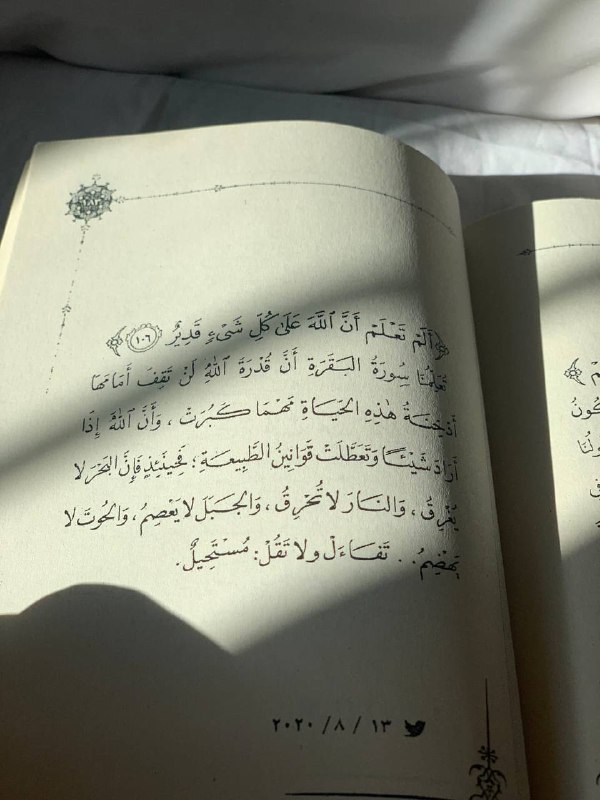 ﴿أَلَمْ تَعْلَمْ أَنَّ ٱللَّهَ عَلَىٰ كُلِّ شَىْءٍ قَدِيرٌ ١٠٦﴾
تُعَلِّمُنَا سُورَةُ البَقَرَةِ أَنَّ قُدْرَةَ اللهِ لَنْ تَقِفَ أَمَامَهَا
هٰذِهِ الحَيَاةِ مَهْمَا كَبُرَتْ، وَأَنَّ اللهَ إِذَا
أَرَادَ شَيْئًا وَتَعَطَّلَتْ قَوَانِينُ الطَّبِيعَةِ؛ فَحِينَئِذٍ فَإِنَّ البَحْرَ لَا
يُغْرِقُ، وَالنَّارَ لَا تُحْرِقُ، وَالجَبَلَ لَا يَعْصِمُ، وَالحُوتَ لَا
يَهْضِمُ.. تَفَاءَلْ ولَا تَقُلْ: مُسْتَحِيلٌ.
١٣ / ٨ / ٢٠٢٠